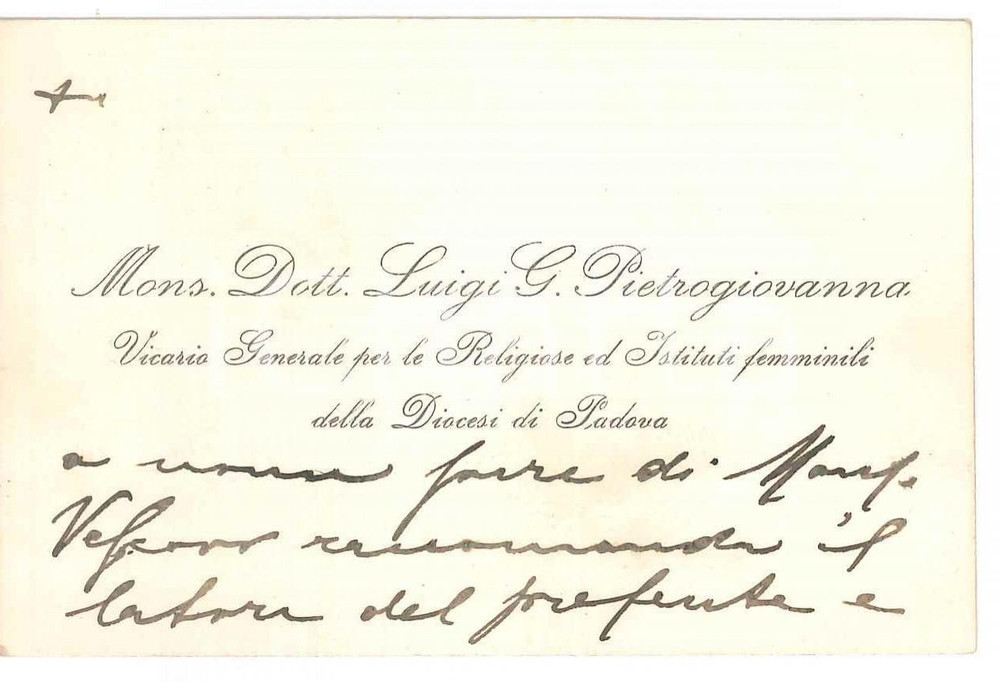 Mons. Dott. Luigi G. Pietrogiovanna
Vicario Generale per le Religiose ed Istituti femminili
della Diocesi di Padova
a nome pure di Mons.
Vescovo raccomanda il
latore del presente e